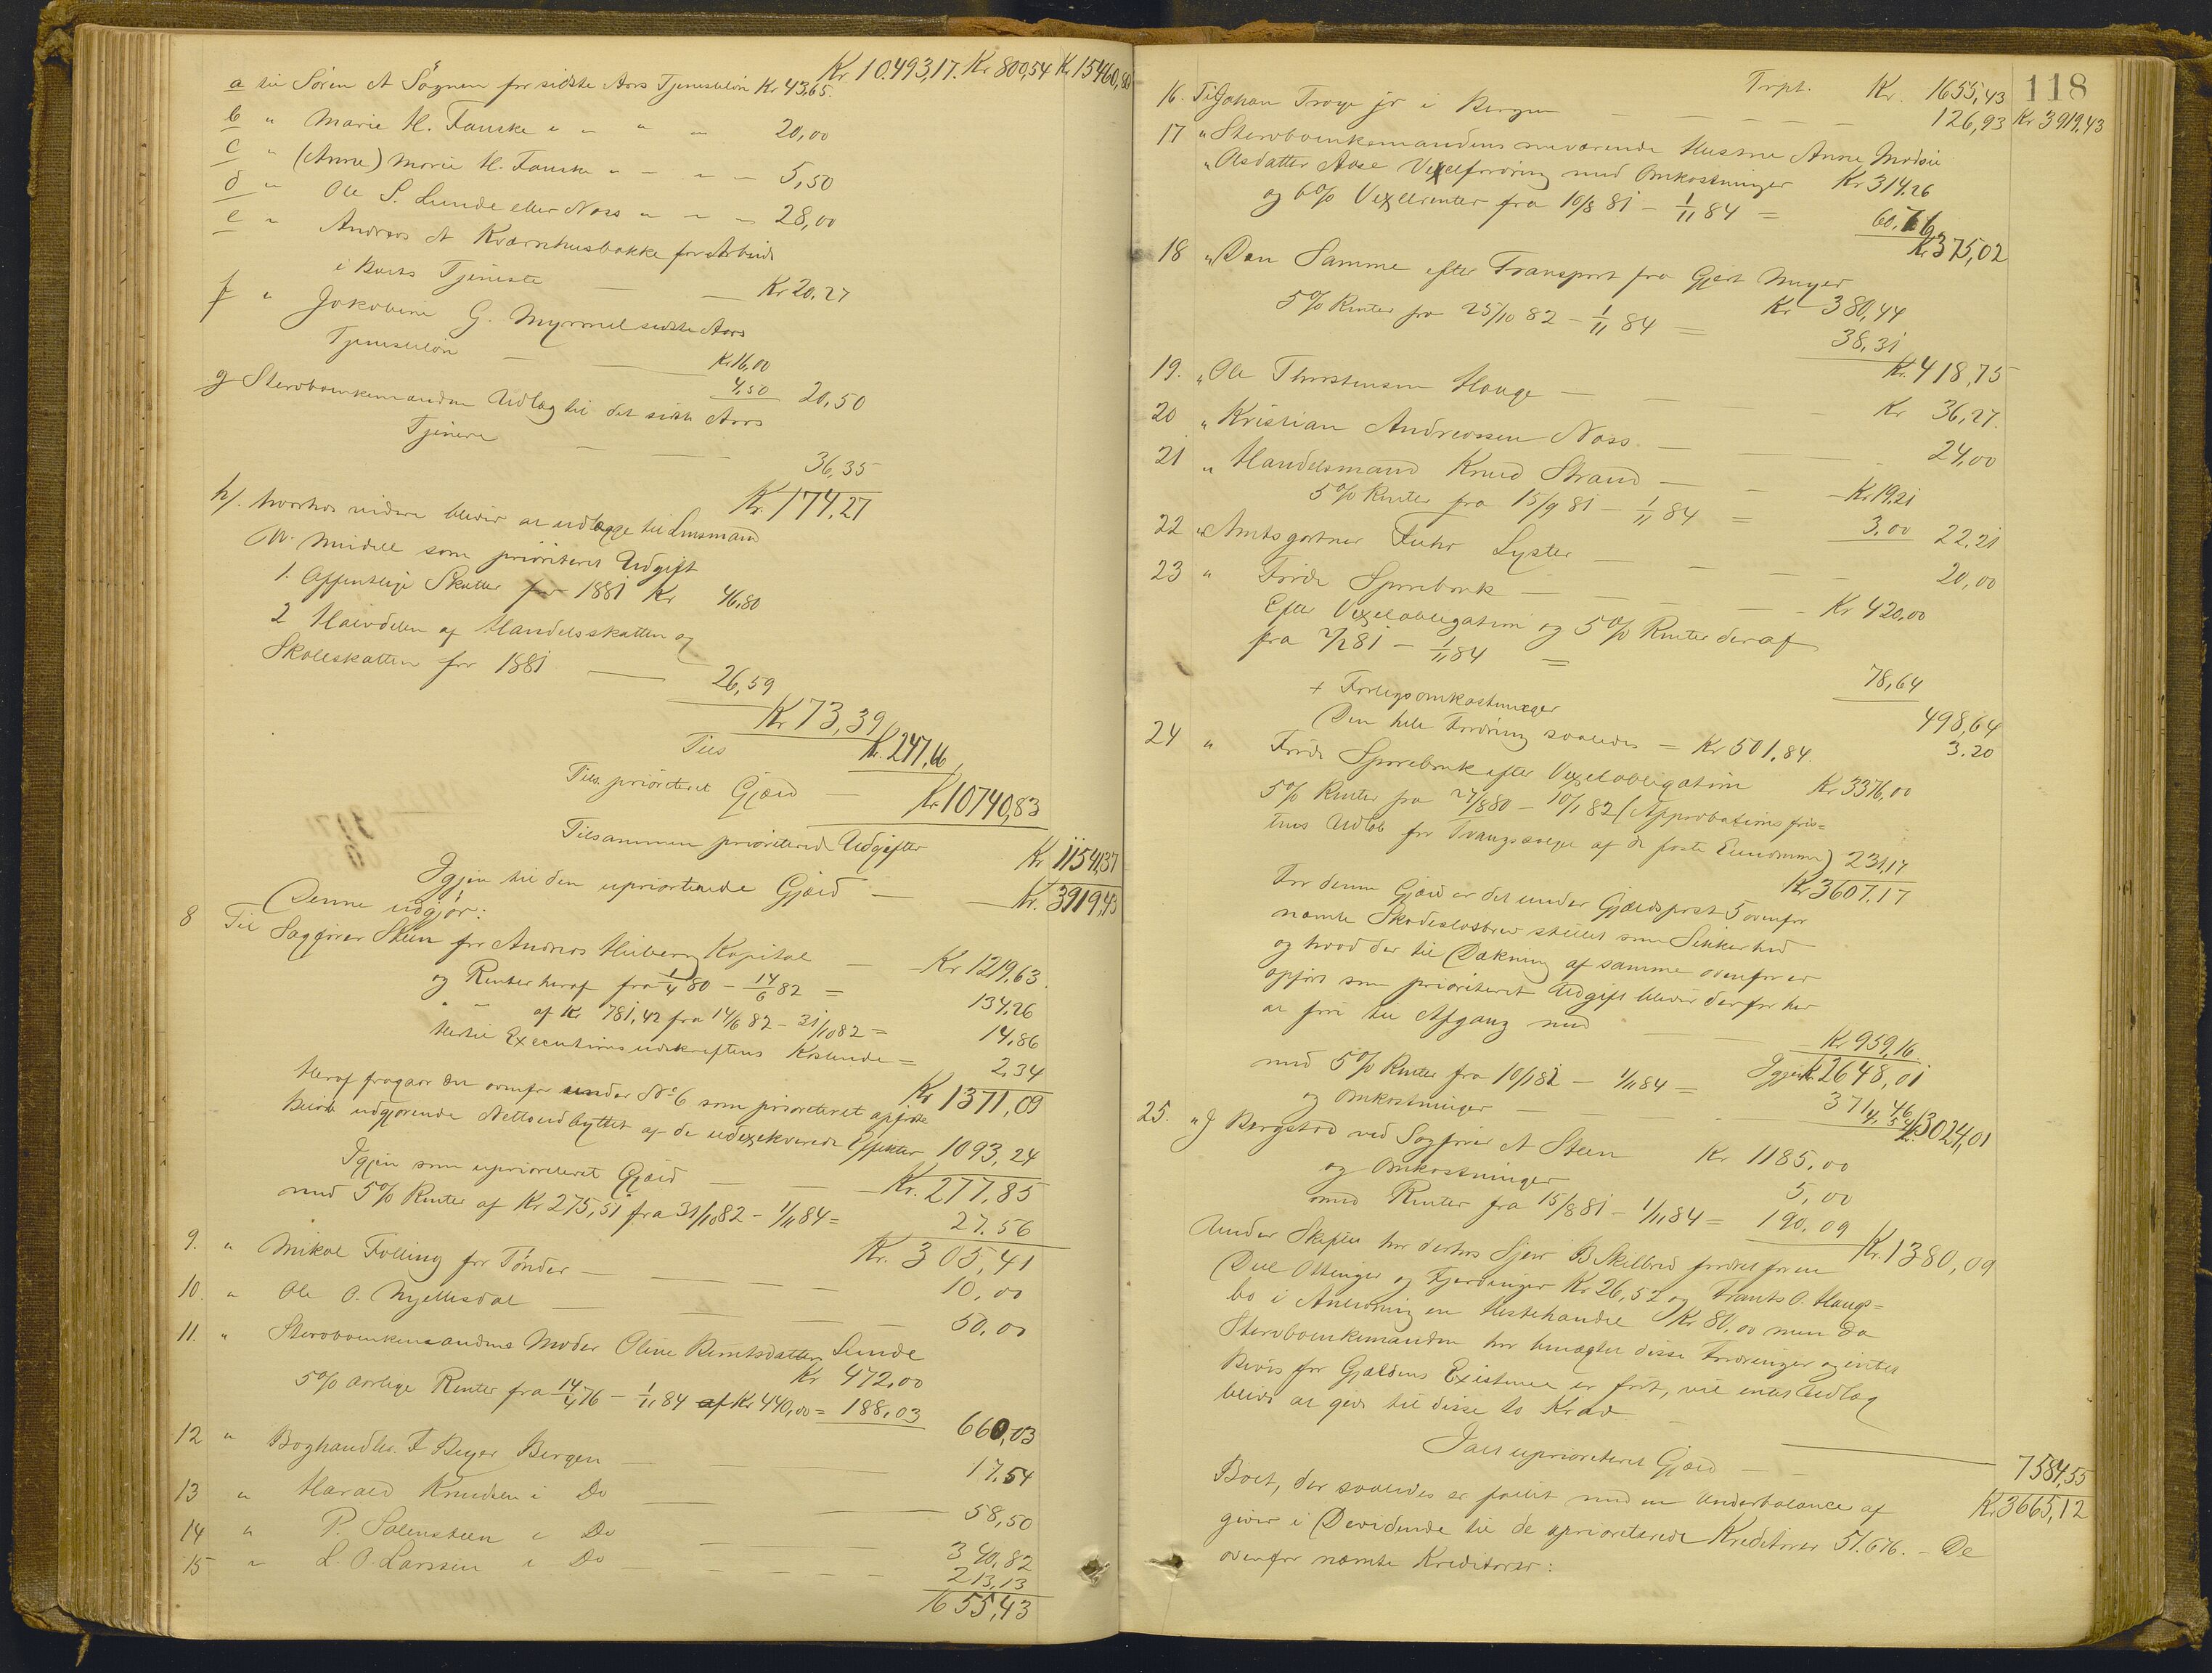 Kr 10.493,17. Kr 800,54 Kr 15460,80
a til Søren A Søgnen for sidste Aars Tjenesteløn Kr 43,65.
b " Marie H. Fauske " " " 20,00
c " (Anne) Marie H. Fauske " " " 5,50
d " Ole S. Lunde eller Nass " " " 28,00
e " Andreas A Kvarnhusbakke for Arbeide
i Boets Tjeneste — — Kr 20,27
f " Jakobine G. Myrmel sidste Aars
Tjenesteløn — — Kr 16,00
4,50 20,50
g Stervboenkemanden Udlæg til det sidste Aars
Tjenere — — — 36,35
Kr. 174,27
h/. hvorhos videre bliver at udlægge til Lensmand
som prioriteret Udgift
1. Offentlige Skatter for 1881 Kr 46,80
2 Halvdelen af Handelsskatten og
Skoleskatten for 1881 — 26,59
Kr 73,39
Tils Kr. 247,66
Tils. prioriteret Gjæld — Kr 10740,83
Tilsammen prioriterede Udgifter Kr 11541,37
Igjen til den uprioriterede Gjæld — — Kr. 3919,43
Denne udgjør:
8 Til Sagfører Steen for Andreas Kapital — Kr 1219,63
og Renter heraf fra 1/4 80 - 14/6 82 = 134,26
" — af Kr 781,42 fra 14/6 82 - 31/10 82 = 14,86
Hertil Executionsudskriftens Kostende = 2,34
Kr 1371,09
Heraf fragaar det ovenfor under No 6 som prioriteret opførte
Beløb udgjørende Nettoudbyttet af de udexekverede Effekter 1093,24
Igjen som uprioriteret Gjæld — — Kr. 277,85
med 5% Renter af Kr 275,51 fra 31/10 82 - 1/11 84 = 27.56
Kr. 305,41
9. " Mikal Følling for Tønder — — — — 10,00
10. " Ole O. Mjellesdal — — — — 50,00
11. " Stervboenkemandens Moder Oline Berntsdatter Lunde
Kr 472,00
5% aarlige Renter fra 14/4 76 - 1/11 84 af Kr 440,00 = 188,03 660,03
12 " Boghandler F Beyer Bergen — — — 17.54
13 " Harald Knudsen i Do — — 58,50
14 " P. Solensteen i Do — — 340,82
15 " L. O. Larssen i Do — — — 213,13
1655,43
118
Trpt. Kr. 1655,43 Kr 3919,43
16. Til Johan Troye jr i Bergen — — — — 126,93
17 " Stervboenkemandens nuværende Hustru Anne Madsie
" Olsdatter Aase Vexelfordring med Omkostninger Kr 314,26
og 6% Vexelrenter fra 10/8 81 - 1/11 84 = 60,76
Kr 375,02
18 " Den Samme efter Transport fra Gjert Meyer
Kr 380,44
5% Renter fra 25/10 82 - 1/11 84 = 38,31
Kr. 418,75
19. " Ole Thorstensen Hauge — — — Kr 36,27.
20 " Kristian Andreassen Nass — — — 24,00
21 " Handelsmand Knud Strand — — — Kr 19,21
5% Renter fra 15/9 81 - 1/11 84 = 3,00 22,21
22 " Amtsgartner Fuhr Lyster — — — — 20,00
23 " Førde Sparebank — — — — Kr 420,00
Efter Vexelobligation og 5% Renter deraf
fra 2/2 81 - 1/11 84 = 78,64
498,64
+ Forligsomkostninger 3.20
Den hele Fordring saaledes = Kr 501,84.
24 " Førde Sparebank efter Vexelobligation Kr 3376,00
5% Renter fra 27/8 80 - 10/1 82 (Approbationsfris=
tens Udløb for Tvangssalget af de faste Eiendomme) 231,17
Kr 3607,17
For denne Gjæld er det under Gjældspost 5 ovenfor
nævnte Skadesløsbrev stillet som Sikkerhed
og hvad der til Dækning af samme ovenfor er
opført som prioriteret Udgift bliver derfor her
at føre til Afgang med — — Kr 959,16
Igjen Kr. 2648,01
med 5% Renter fra 10/1 82 - 1/11 84 = 371,46
og Omkostninger — — — 4,54 Kr. 3024,01
25. " J Bergstad ved Sagfører A Steen Kr 1185,00
og Omkostninger 5,00
med Renter fra 15/8 81 - 1/11 84 = 190,09 Kr. 1380,09
Under Skiftet har derhos Sjur B Skilbred fordret for en
Deel Ottinger og Fjerdinger Kr 26,52 og Frants O. Haugs=
bo i Anledning en Hestehandel Kr 80,00 men da
Stervboenkemanden har benægtet disse Fordringer og intet
Bevis for Gjældens Existence er ført, vil intet Udlæg
blive at give til disse to Krav. —
Ialt uprioriteret Gjæld — — 7584,55
Boet, der saaledes er fallit med en Underbalance af Kr 3665,12
giver i Devidende til de uprioriterede Kreditorer 51.676. - De
ovenfor nævnte Kreditorer: